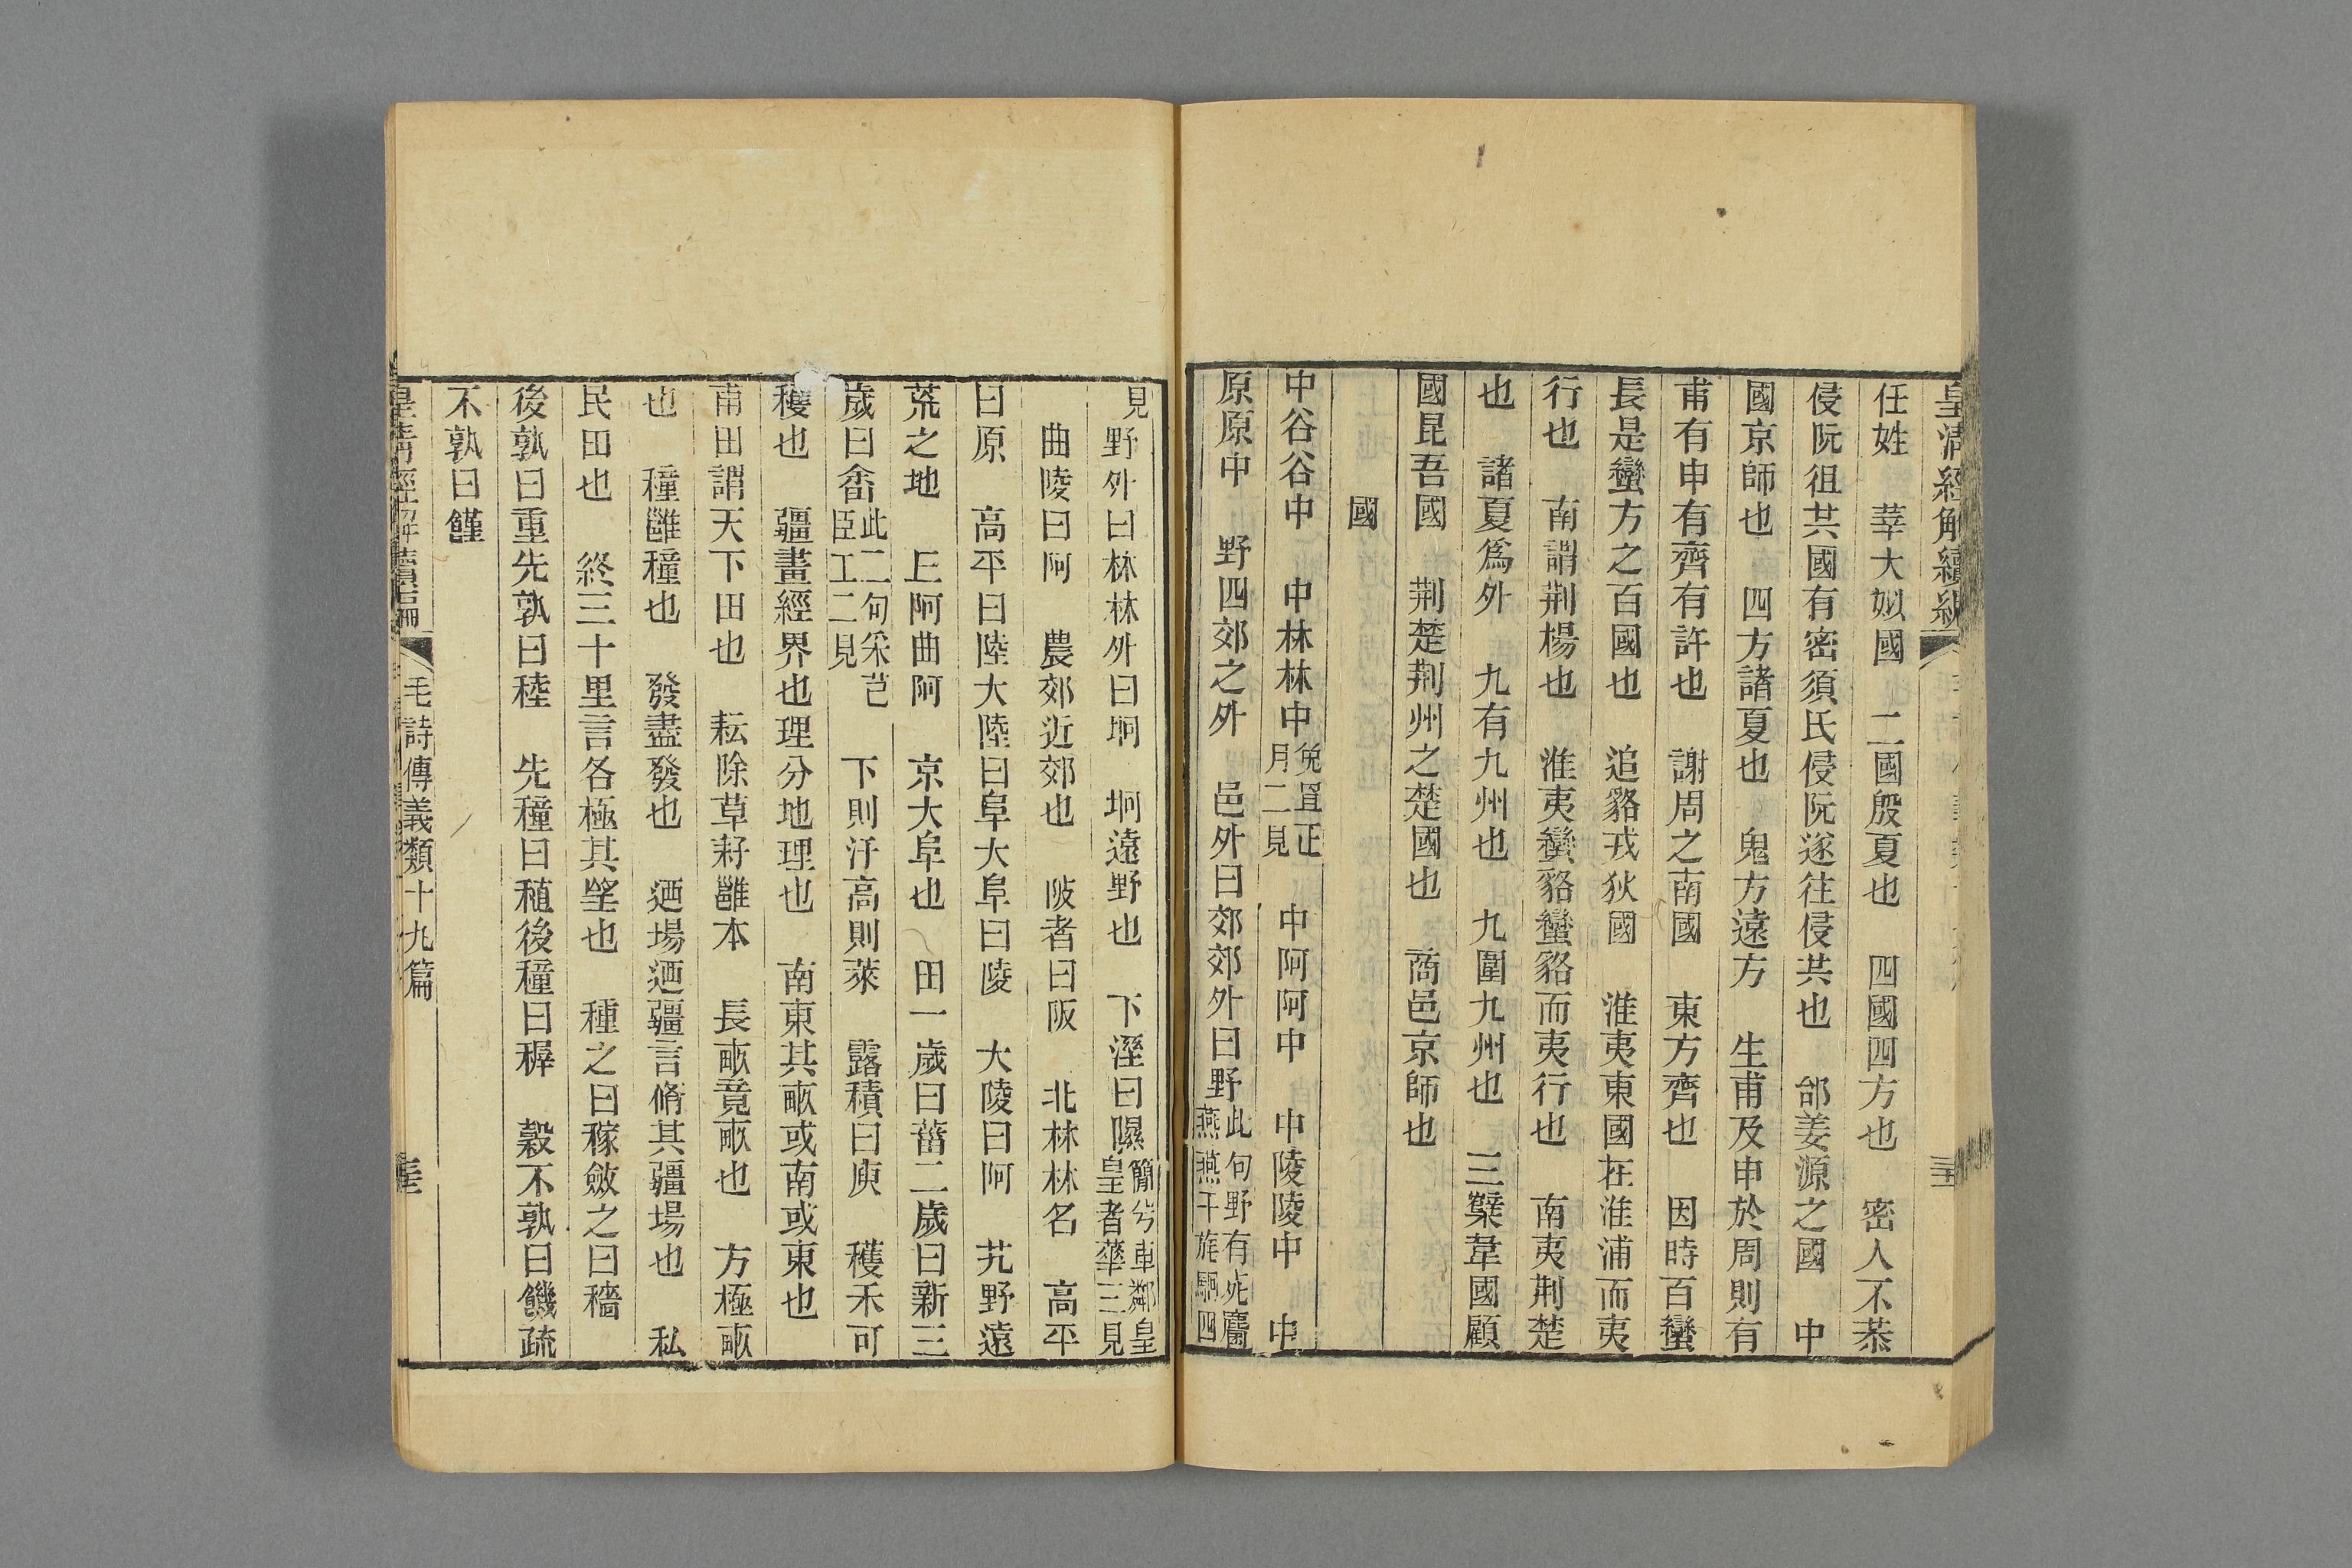 皇清經解續編
任姓　莘大姒國　二國殷夏也　四國四方也　密人不恭
侵阮徂共國有密須氏侵阮遂往侵共也　邰姜源之國　中
國京師也　四方諸夏也　鬼方遠方　生甫及申於周則有
甫有申有齊有許也　謝周之南國　東方齊也　因時百蠻
長是蠻方之百國也　追貉戎狄國　淮夷東國在淮浦而夷
行也　南謂荆楊也　淮夷蠻貉蠻貉而夷行也　南夷荆楚
也　諸夏爲外　九有九州也　九圍九州也　三櫱韋國顧
國昆吾國　荆楚荆州之楚國也　商邑京師也
國
中谷谷中　中林林中兔罝正月二見　中阿阿中　中陵陵中　中
原原中　野四郊之外　邑外曰郊郊外曰野此句野有死麕燕燕干旄駉四
見野外曰林林外曰坰　坰遠野也　下溼曰隰簡兮車鄰皇皇者華三見
曲陵曰阿　農郊近郊也　陂者曰阪　北林林名　高平
曰原　高平曰陸大陸曰阜大阜曰陵　大陵曰阿　艽野遠
荒之地　丘阿曲阿　京大阜也　田一歲曰菑二歲曰新三
歲曰畬此二句采芑臣工二見　下則汙高則萊　露積曰庾　穫禾可
穫也　疆畫經界也理分地理也　南東其畝或南或東也
甫田謂天下田也　耘除草耔雝本　長畝竟畝也　方極畝
也　穜雝穜也　發盡發也　迺場迺疆言脩其疆場也　私
民田也　終三十里言各極其望也　種之曰稼斂之曰穡
後孰曰重先孰曰稑　先穜曰稙後穜曰穉　穀不孰曰饑疏
不孰曰饉
皇清經解續編　毛詩傳義類十九篇